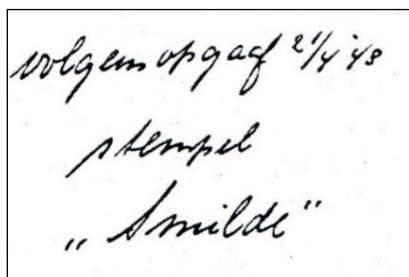 volgens opgaaf 21/4 '48
stempel
„Smilde"